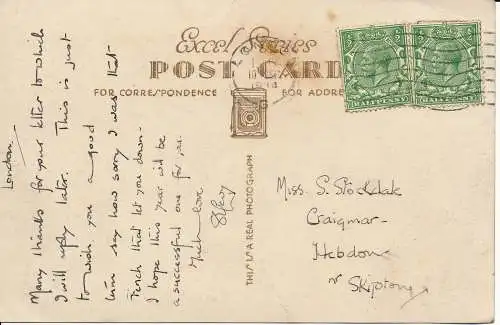 Excel Series
POST CARD
FOR CORRESPONDENCE
FOR ADDRE
HALFPENNY
HALFPENNY
London.
Many thanks for your letter to which
I will reply later. This is just
to wish you a good
term & say how sorry I was that
Finch that let you down –
I hope this year will be
a successful one for you.
Much love
THIS IS A REAL PHOTOGRAPH
Miss. S. Stockdale
Craigmar.
Hebdon
nr Skipton